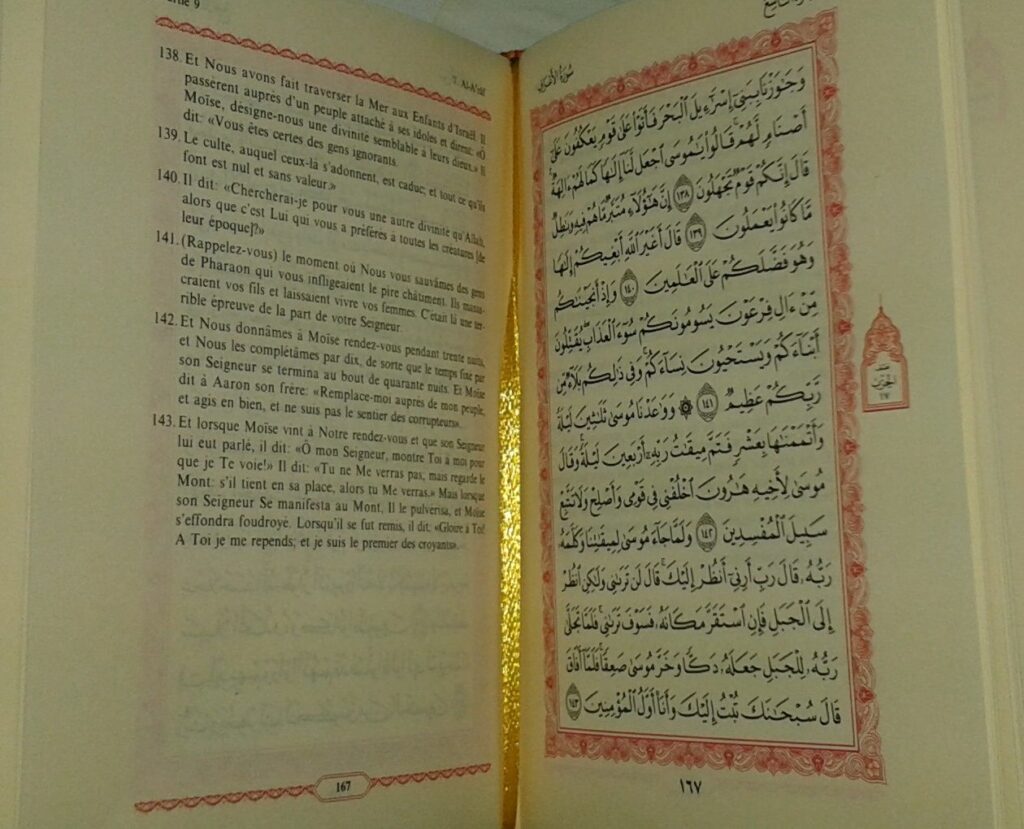 Partie 9
7. Al-A'râf
138. Et Nous avons fait traverser la Mer aux Enfants d'Israël. Il
passèrent auprès d'un peuple attaché à ses idoles et dirent: «Ô
Moïse, désigne-nous une divinité semblable à leurs dieux.» Il
dit: «Vous êtes certes des gens ignorants.
139. Le culte, auquel ceux-là s'adonnent, est caduc; et tout ce qu'ils
font est nul et sans valeur.»
140. Il dit: «Chercherai-je pour vous une autre divinité qu'Allah,
alors que c'est Lui qui vous a préférés à toutes les créatures [de
leur époque]?»
141. (Rappelez-vous) le moment où Nous vous sauvâmes des gens
de Pharaon qui vous infligeaient le pire châtiment. Ils massa-
craient vos fils et laissaient vivre vos femmes. C'était là une ter-
rible épreuve de la part de votre Seigneur.
142. Et Nous donnâmes à Moïse rendez-vous pendant trente nuits,
et Nous les complétâmes par dix, de sorte que le temps fixé par
son Seigneur se termina au bout de quarante nuits. Et Moïse
dit à Aaron son frère: «Remplace-moi auprès de mon peuple,
et agis en bien, et ne suis pas le sentier des corrupteurs».
143. Et lorsque Moïse vint à Notre rendez-vous et que son Seigneur
lui eut parlé, il dit: «Ô mon Seigneur, montre Toi à moi pour
que je Te voie!» Il dit: «Tu ne Me verras pas, mais regarde le
Mont: s'il tient en sa place, alors tu Me verras.» Mais lorsque
son Seigneur Se manifesta au Mont, Il le pulverisa, et Moïse
s'effondra foudroyé. Lorsqu'il se fut remis, il dit: «Gloire à Toi!
A Toi je me repends; et je suis le premier des croyants».
167
سُورَةُ الأَعْرَافِ
وَجَٰوَزْنَا بِبَنِىٓ إِسْرَٰٓءِيلَ ٱلْبَحْرَ فَأَتَوْا۟ عَلَىٰ قَوْمٍ يَعْكُفُونَ عَلَىٰٓ
أَصْنَامٍ لَّهُمْ ۚ قَالُوا۟ يَٰمُوسَى ٱجْعَل لَّنَآ إِلَٰهًا كَمَا لَهُمْ ءَالِهَةٌ ۚ
قَالَ إِنَّكُمْ قَوْمٌ تَجْهَلُونَ ١٣٨ إِنَّ هَٰٓؤُلَآءِ مُتَبَّرٌ مَّا هُمْ فِيهِ وَبَٰطِلٌ
مَّا كَانُوا۟ يَعْمَلُونَ ١٣٩ قَالَ أَغَيْرَ ٱللَّهِ أَبْغِيكُمْ إِلَٰهًا
وَهُوَ فَضَّلَكُمْ عَلَى ٱلْعَٰلَمِينَ ١٤٠ وَإِذْ أَنجَيْنَٰكُم
مِّنْ ءَالِ فِرْعَوْنَ يَسُومُونَكُمْ سُوٓءَ ٱلْعَذَابِ ۖ يُقَتِّلُونَ
أَبْنَآءَكُمْ وَيَسْتَحْيُونَ نِسَآءَكُمْ ۚ وَفِى ذَٰلِكُم بَلَآءٌ مِّن
رَّبِّكُمْ عَظِيمٌ ١٤١ ۞ وَوَٰعَدْنَا مُوسَىٰ ثَلَٰثِينَ لَيْلَةً
وَأَتْمَمْنَٰهَا بِعَشْرٍ فَتَمَّ مِيقَٰتُ رَبِّهِۦٓ أَرْبَعِينَ لَيْلَةً ۚ وَقَالَ
مُوسَىٰ لِأَخِيهِ هَٰرُونَ ٱخْلُفْنِى فِى قَوْمِى وَأَصْلِحْ وَلَا تَتَّبِعْ
سَبِيلَ ٱلْمُفْسِدِينَ ١٤٢ وَلَمَّا جَآءَ مُوسَىٰ لِمِيقَٰتِنَا وَكَلَّمَهُۥ
رَبُّهُۥ قَالَ رَبِّ أَرِنِىٓ أَنظُرْ إِلَيْكَ ۚ قَالَ لَن تَرَىٰنِى وَلَٰكِنِ ٱنظُرْ
إِلَى ٱلْجَبَلِ فَإِنِ ٱسْتَقَرَّ مَكَانَهُۥ فَسَوْفَ تَرَىٰنِى ۚ فَلَمَّا تَجَلَّىٰ
رَبُّهُۥ لِلْجَبَلِ جَعَلَهُۥ دَكًّا وَخَرَّ مُوسَىٰ صَعِقًا ۚ فَلَمَّآ أَفَاقَ
قَالَ سُبْحَٰنَكَ تُبْتُ إِلَيْكَ وَأَنَا۠ أَوَّلُ ٱلْمُؤْمِنِينَ ١٤٣
نصف
الحزب
١٧
١٦٧